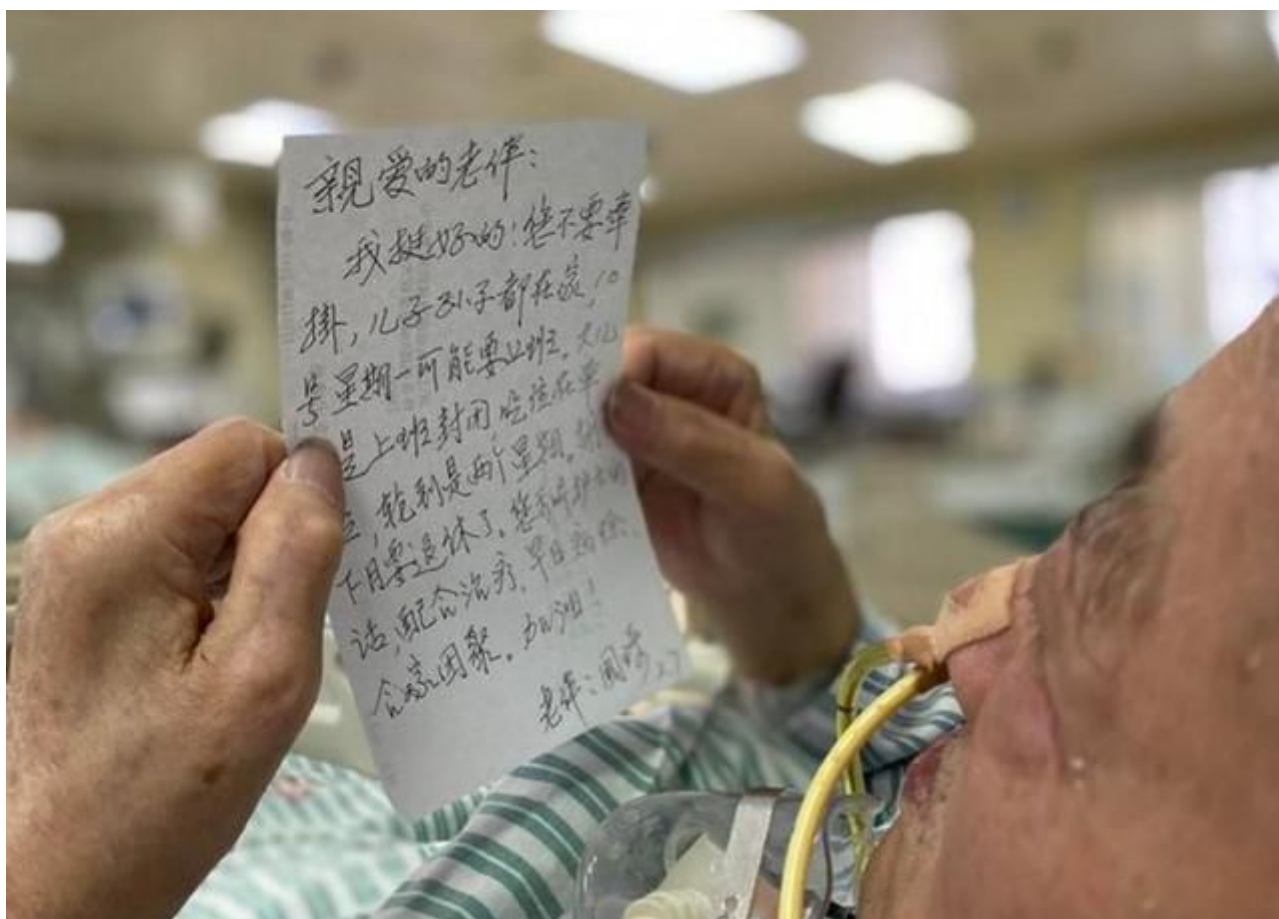 親爱的老伴：
我挺好的！您不要牵
掛，儿子孙子都在家，10
号星期一可能要上班。大儿
是上班封闭，吃住在单
轮到是两个星期。
下月要退休了。您要听护士的
话，配合治疗，早日病除，
合家团聚。加油！
老伴：国 2.7